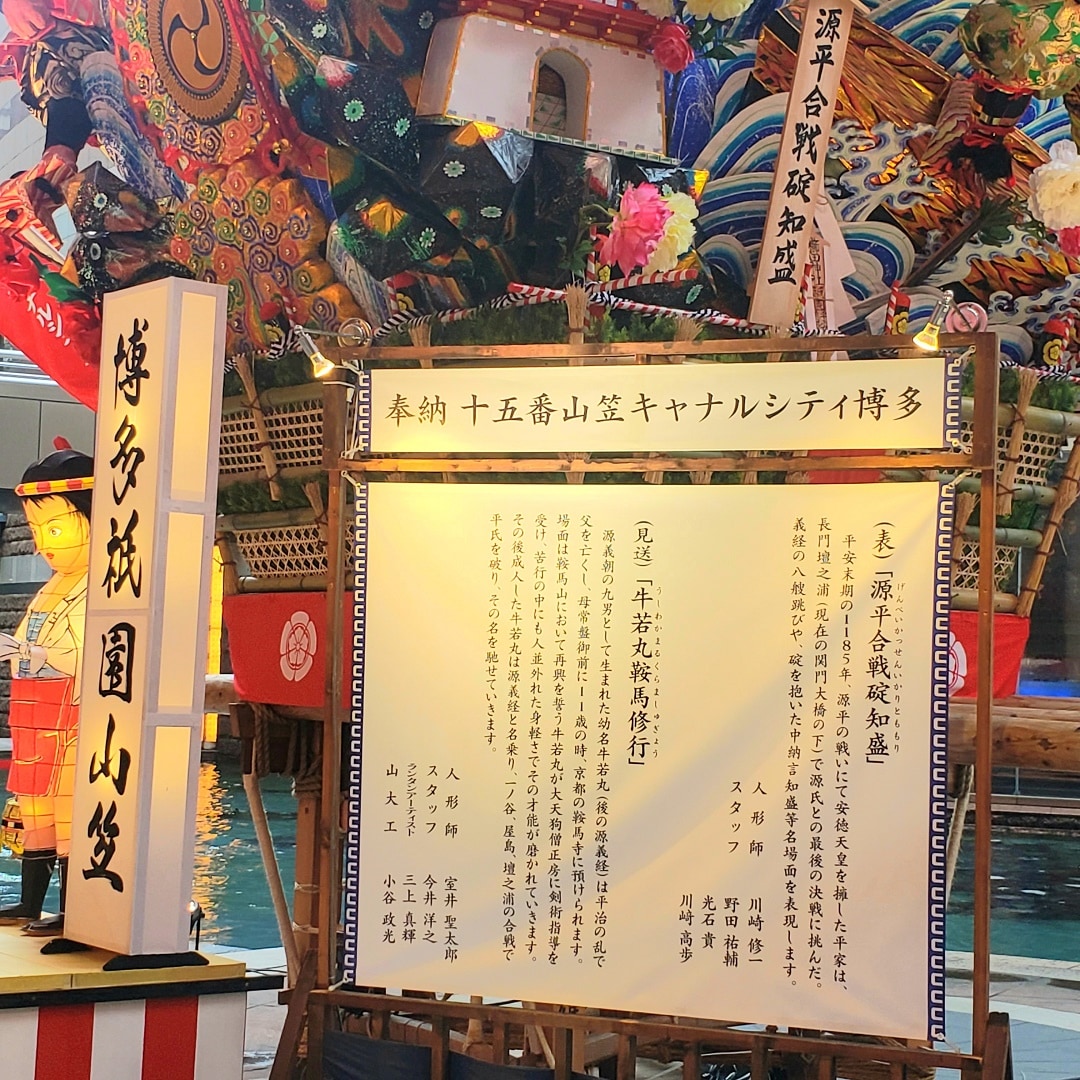 源平合戦碇知盛
博多祇園山笠
奉納 十五番山笠キャナルシティ博多
(表)「源平合戦碇知盛」
げんぺいかっせんいかりとももり
平安末期の1185年、源平の戦いにて安徳天皇を擁した平家は、
長門壇之浦(現在の関門大橋の下)で源氏との最後の決戦に挑んだ。
義経の八艘跳びや、碇を抱いた中納言知盛等名場面を表現します。
人形師 川﨑 修一
スタッフ 野田 祐輔
光石 貴
川﨑 高歩
(見送)「牛若丸鞍馬修行」
うしわかまるくらましゅぎょう
源義朝の九男として生まれた幼名牛若丸(後の源義経)は平治の乱で
父を亡くし、母常盤御前に11歳の時、京都の鞍馬寺に預けられます。
場面は鞍馬山において再興を誓う牛若丸が大天狗僧正房に剣術指導を
受け、苦行の中にも人並外れた身軽さでその才能が磨かれていきます。
その後成人した牛若丸は源義経と名乗り、一ノ谷、屋島、壇之浦の合戦で
平氏を破り、その名を馳せていきます。
人形師 室井 聖太郎
スタッフ 今井 洋之
ランタンアーティスト 三上 真輝
山大工 小谷 政光